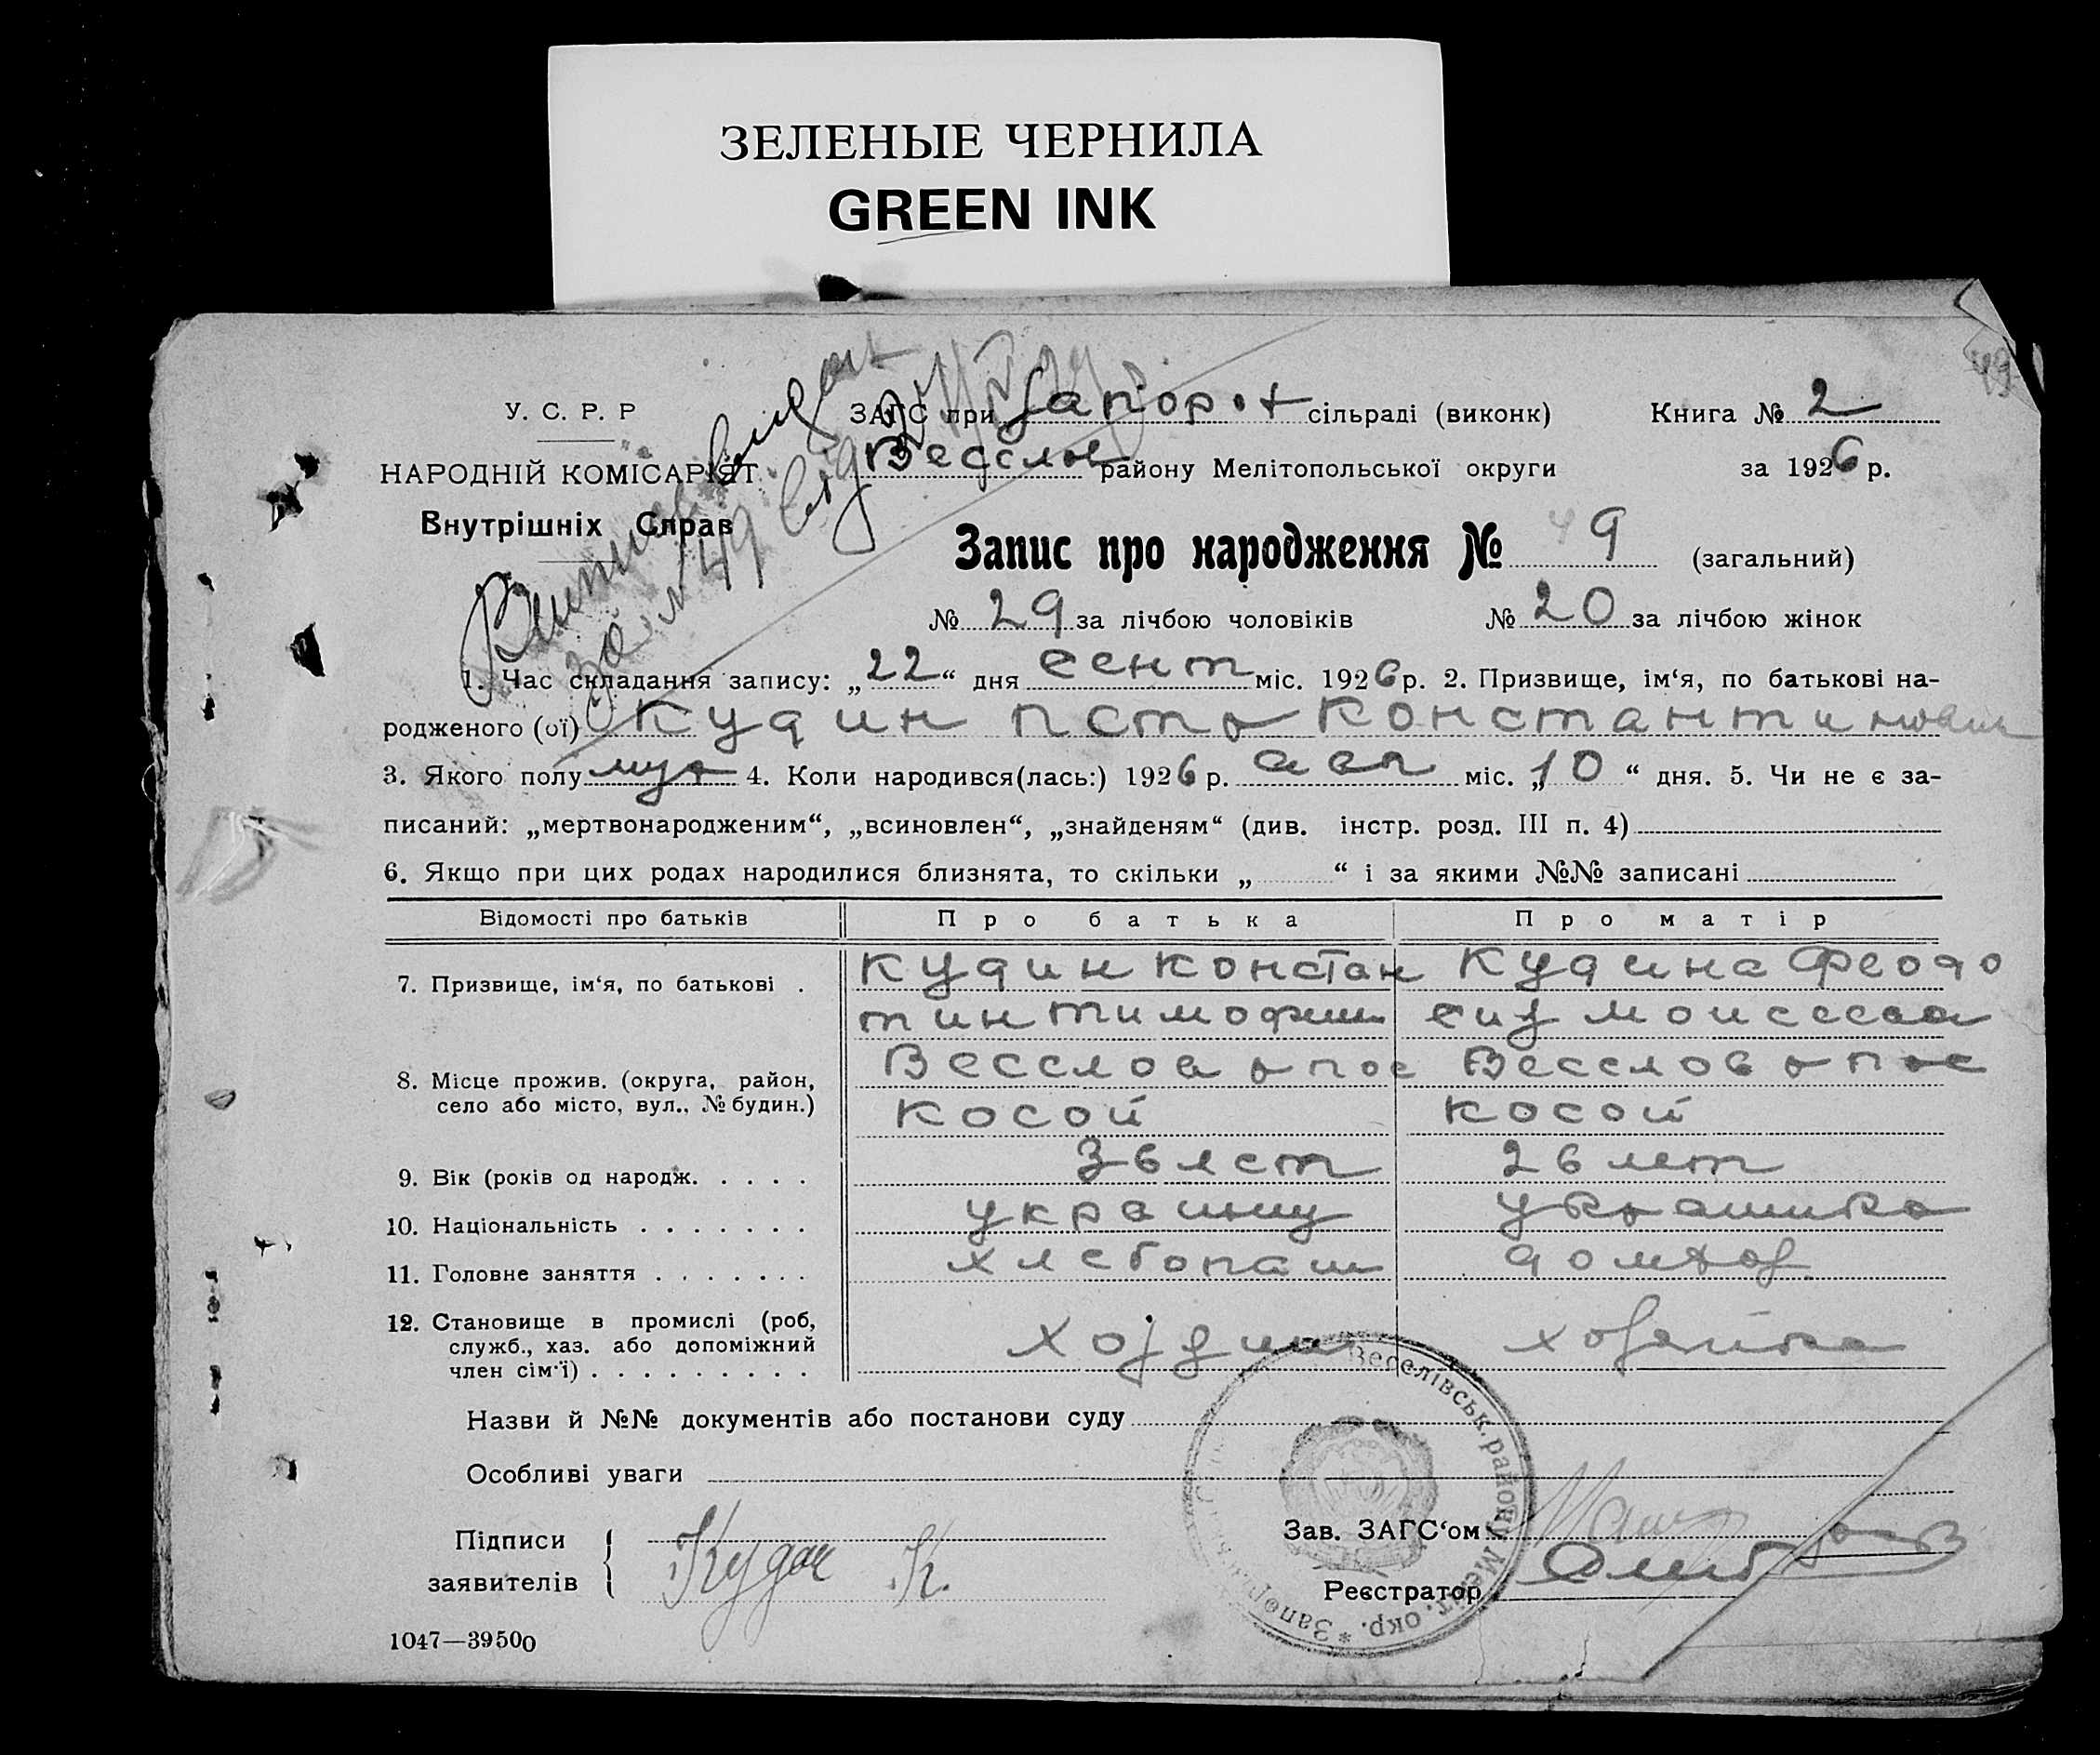 ЗЕЛЕНЫЕ ЧЕРНИЛА
GREEN INK
49
У. С. Р. Р
ЗАГС при Запорож сільраді (виконк)
Книга № 2
НАРОДНІЙ КОМІСАРІЯТ
Веселов району Мелітопольської округи
за 1926 р.
Внутрішніх Справ
за № 49 від
Запис про народження № 49 (загальний)
№ 29 за лічбою чоловіків № 20 за лічбою жінок
1. Час складання запису: „22“ дня сент міс. 1926 р. 2. Призвище, ім‘я, по батькові на-
родженого (ої) Кудин Петр Константинович
3. Якого полу муж 4. Коли народився(лась:) 1926 р. авг міс. „10“ дня. 5. Чи не є за-
писаний: „мертвонародженим“, „всиновлен“, „знайденям“ (див. інстр. розд. III п. 4)
6. Якщо при цих родах народилися близнята, то скільки „ “ і за якими №№ записані
Відомості про батьків Про батька Про матір
7. Призвище, ім‘я, по батькові . Кудин Констан Кудина Феодо
тин Тимофеев сия Моисеева
8. Місце прожив. (округа, район, Веселов р пос Веселов р пос
село або місто, вул., № будин.) Косой Косой
9. Вік (років од народж. . . . . 36 лет 26 лет
10. Національність . . . . . . . украинц украинка
11. Головне заняття . . . . . . . хлебопаш домхоз
12. Становище в промислі (роб, хозяин хозяйка
служб., хаз. або допоміжний
член сім‘ї) . . . . . . . . .
Назви й №№ документів або постанови суду
Особливі уваги
Підписи
заявителів
Кудин К.
Зав. ЗАГС‘ом
Реєстратор
Веселівськ. району Меліт. окр. * Запор
1047—39500